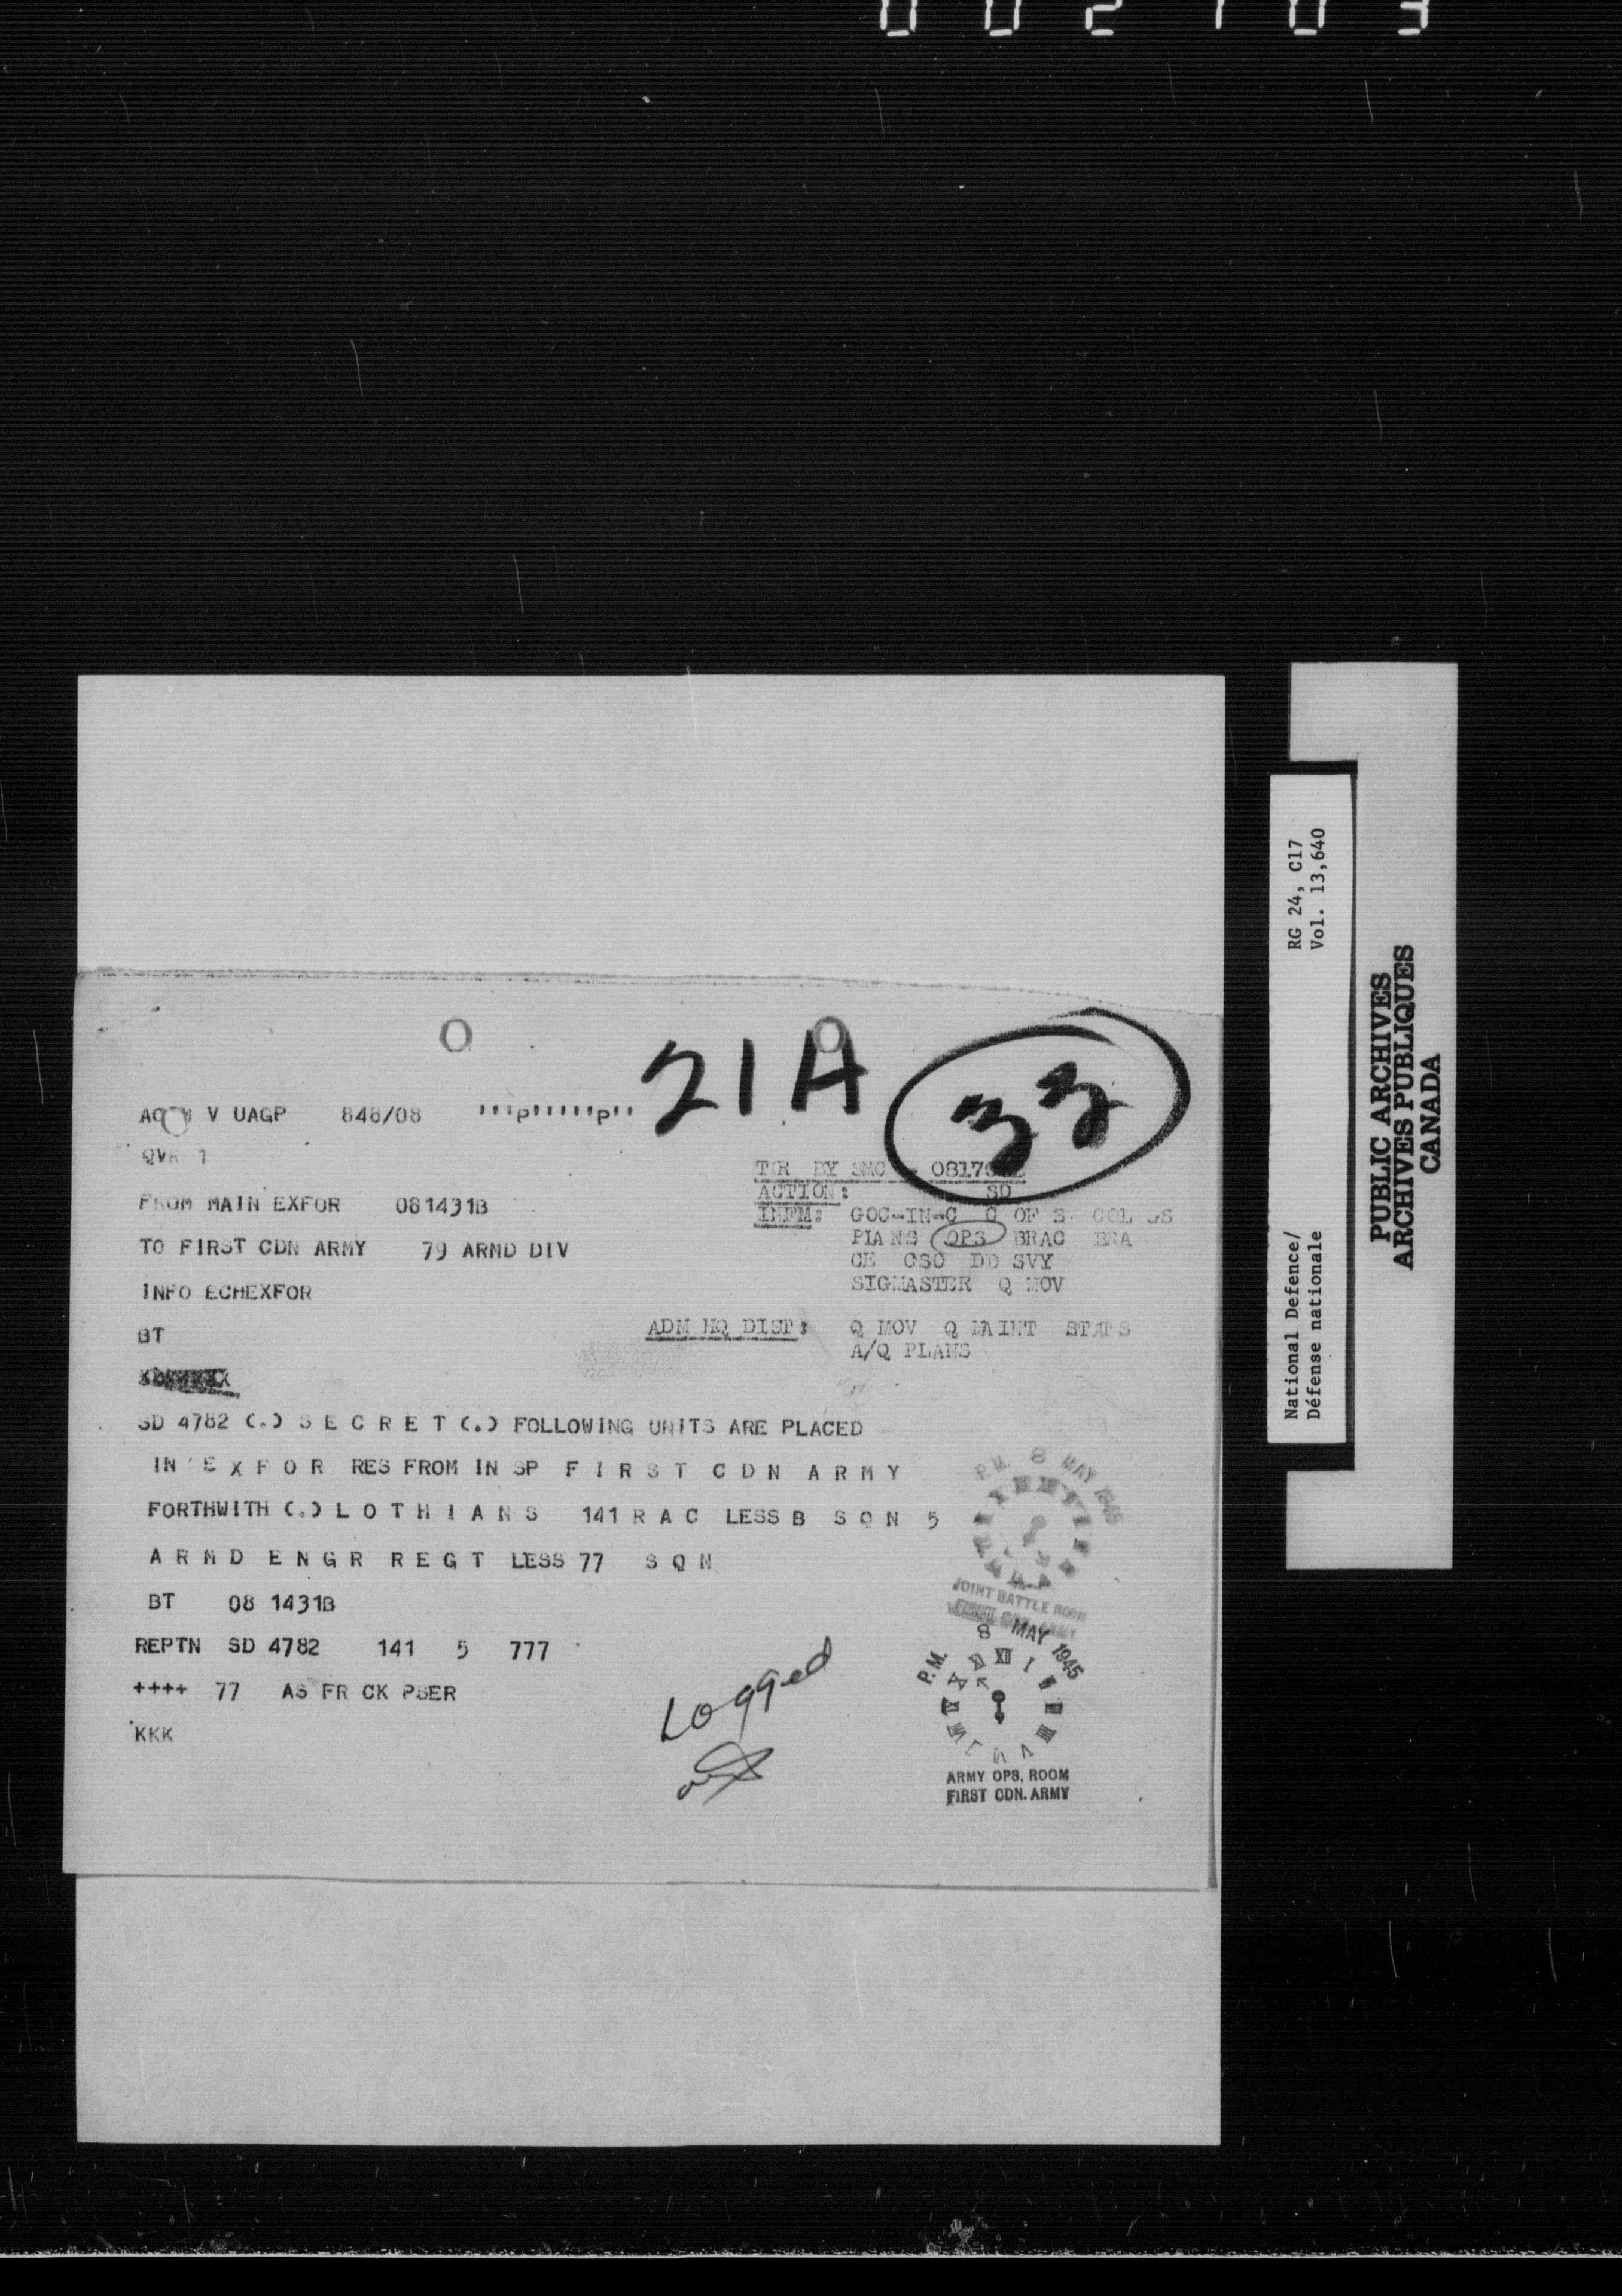 002103
21A
33
V UAGP 846/08 '''P'''''P''
QVR 1
FROM MAIN EXFOR 081431B
TO FIRST CDN ARMY 79 ARMD DIV
INFO ECHEXFOR
BT
TOR BY SMC
ACTION: SD
INFM: GOC-IN-C C OF S COL GS
PLANS OPS BRAC BRA
CE CSO DD SVY
SIGMASTER Q MOV
ADM HQ DIST: Q MOV Q MAINT STATS
A/Q PLANS
SD 4782 (.) S E C R E T (.) FOLLOWING UNITS ARE PLACED
IN E X F O R RES FROM IN SP F I R S T C D N A R M Y
FORTHWITH (.) L O T H I A N S 141 R A C LESS B S Q N 5
A R M D E N G R R E G T LESS 77 S Q N
BT 08 1431B
REPTN SD 4782 141 5 777
++++ 77 AS FR CK PSER
KKK
Logged
P.M. 8 MAY 1945
JOINT BATTLE ROOM
FIRST CDN. ARMY
P.M. 8 MAY 1945
ARMY OPS. ROOM
FIRST CDN. ARMY
National Defence/ RG 24, C17
Défense nationale Vol. 13,640
PUBLIC ARCHIVES
ARCHIVES PUBLIQUES
CANADA